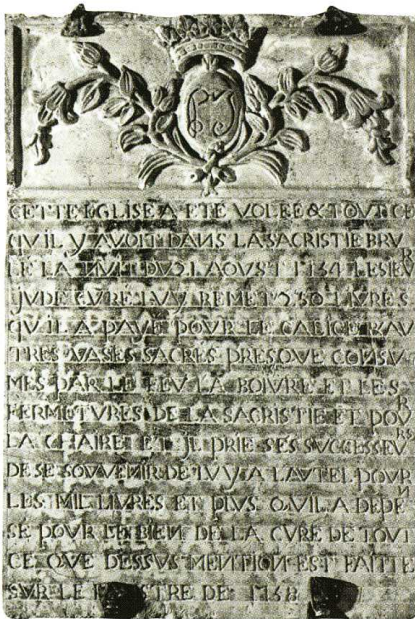 CETTE EGLISE A ETE VOLEE & TOVT CE
QV IL Y AVOIT DANS LA SACRISTIE BRV
LE LA NUIT DV 21 AOVST 1734 LE SIEVR
JVDE CVRE LVY REMET 230 LIVRES
QV IL A PAYE POVR LE CALICE & AV
TRES VASES SACRES PRESQVE CONSV
MES PAR LE FEV LA BOIVRE ET LES
FERMETVRES DE LA SACRISTIE ET POVR
LA CHAIRE ET JL PRIE SES SVCCESSEVRS
DE SE SOVVENIR DE LVY A LAVTEL POVR
LES MIL LIVRES ET PLVS QVIL A DEDE
SE POVR LE BIEN DE LA CVRE DE TOVT
CE QVE DESSVS MENTION EST FAITTE
SVR LE REGISTRE DE 1738